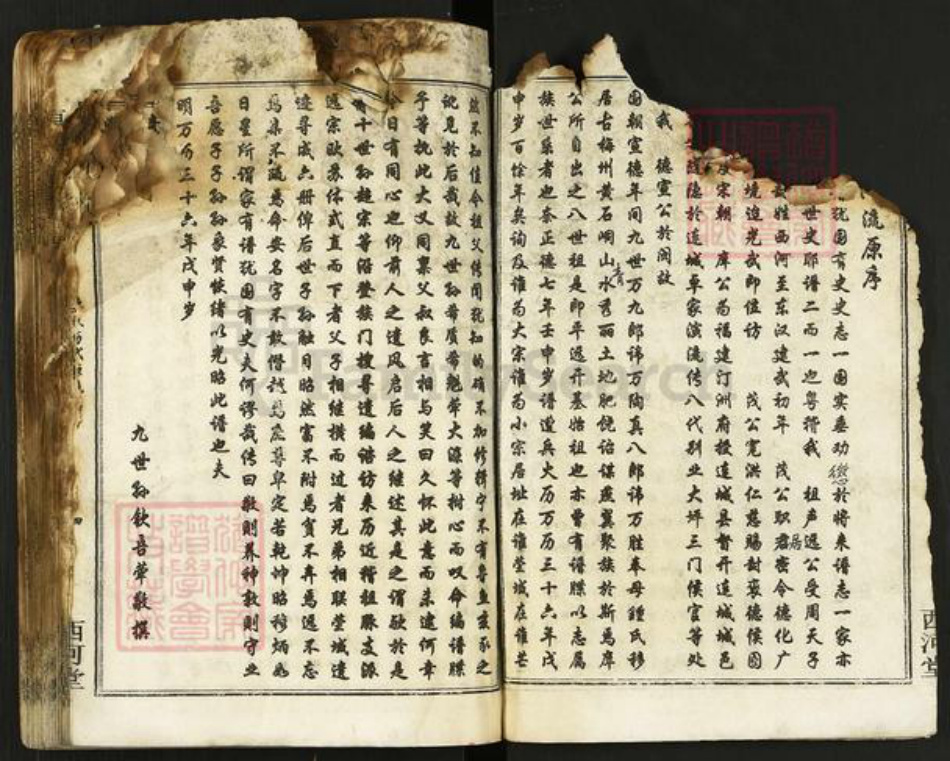 流原序
犹国有史史志一国实垂劝惩於将来谱志一家亦
世史耶谱二而一也粤稽我 祖声遇公受周天子
姓西河至东汉建武初年 茂公职居密令德化广
境迨光武即位访 茂公宽洪仁慈赐封褒德侯图
及宋朝 庠公为福建汀洲府授连城县督开连城城邑
隐於连城卓家演流传八代别业大坪三门侯官等处
我 德宣公於阅故
国朝宣德年间九世万九郎讳万陶真八郎讳万胜奉母锺氏移
居古梅州黄石峒山水秀丽土地肥饶诒谋燕翼聚族於斯焉庠
公所自出之八世祖是即平远开基始祖也亦曾有谱牒以志属
族世系者也奈正德七年壬申岁谱遭兵火历万历三十六年戊
申岁百馀年矣询及谁为大宗谁为小宗居址在谁茔域在谁芒
然不知佳令祖父传闻犹知的确不加修辑宁不有鲁鱼亥豕之
讹见於后哉故九世孙带质带魁带大源等树心而叹命编谱牒
予等抚此大义同禀父叔良言相与笑曰久怀此意而未逮何幸
今日有同心也仰前人之遗风启后人之继述其是之谓欤於是
十世孙超宗等沿登族门搜寻遗编谘访来历近稽祖脉支派
远宗欧苏体式直而下者父子相继横而过者兄弟相联茔域遗
迹寻成六册俾后世子孙触目昭然富不附焉贫不弃焉远不忘
焉集不疏焉命安名字不敢僭越焉庶尊卑定若乾坤昭穆炳如
日星所谓家有谱犹国有史夫何谬哉传曰敬则养神敦则守业
吾愿子子孙孙象贤恢绪以光昭此谱也夫
明万历三十六年戊申岁
九世孙钦吾带敬撰
西河堂
西河堂
FamilySearch